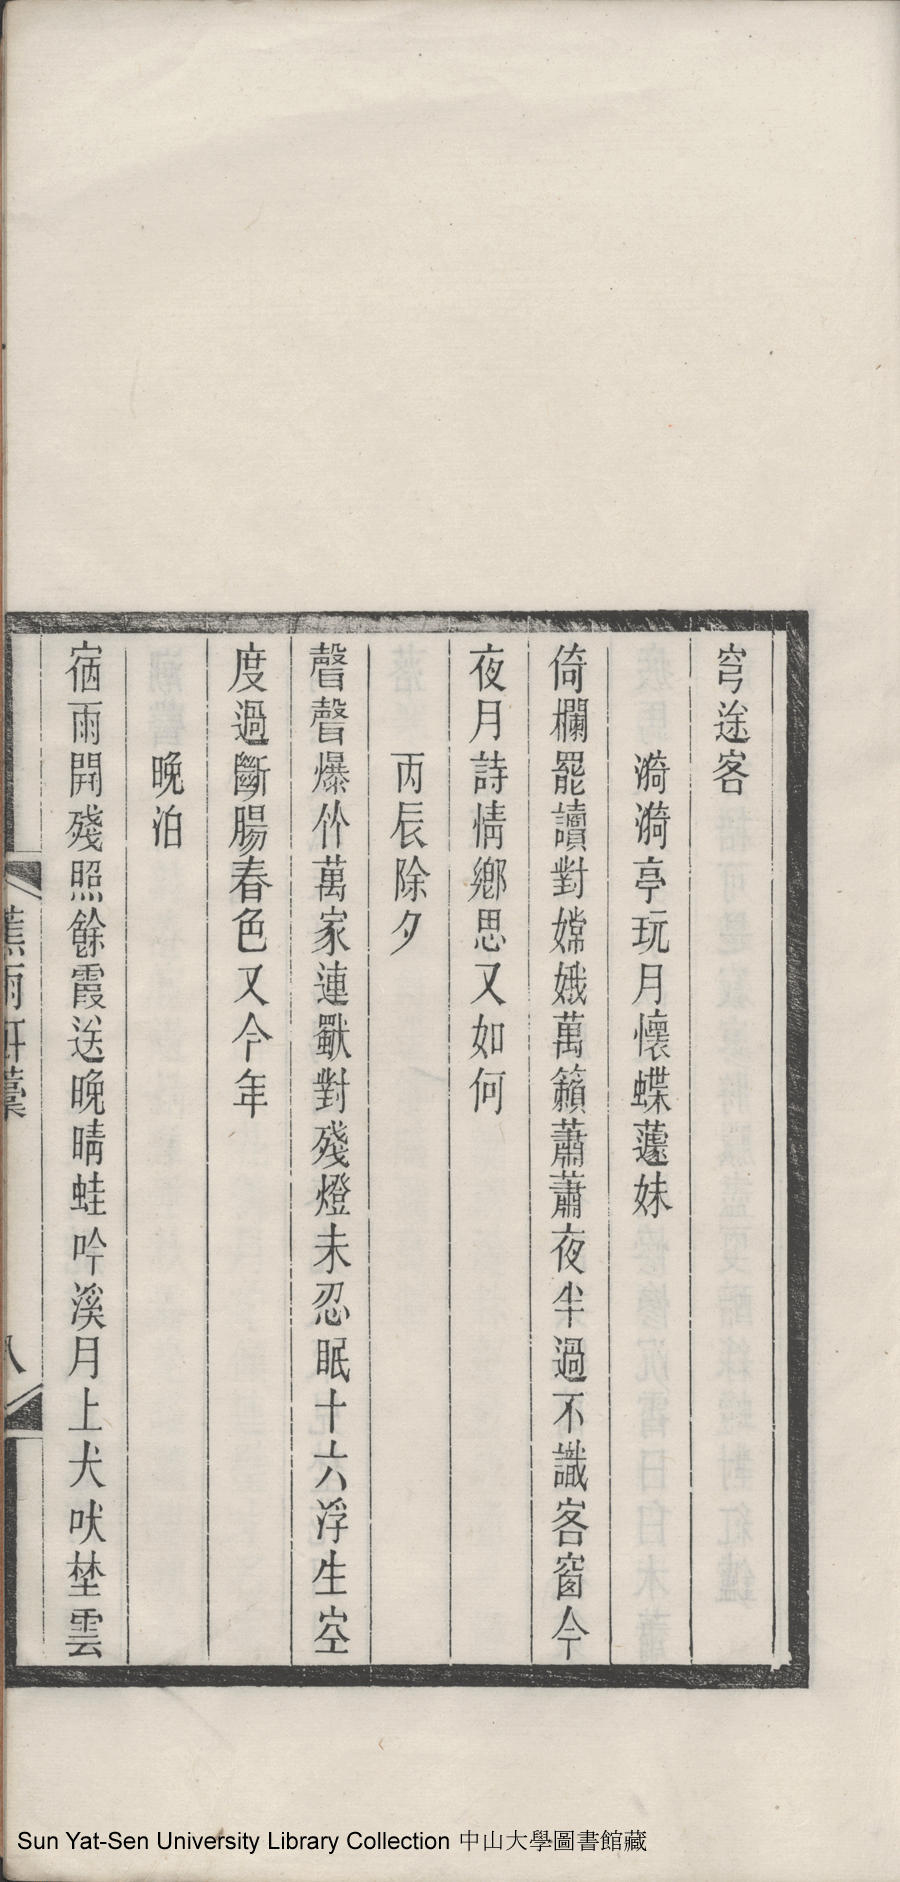 穹途客
漪漪亭玩月懷蝶蘧妹
倚欄罷讀對嫦娥萬籟蕭蕭夜半過不識客窗今
夜月詩情鄉思又如何
丙辰除夕
聲聲爆竹萬家連獸對殘燈未忍眠十六浮生空
度過斷腸春色又今年
晚泊
宿雨開殘照餘霞送晚晴蛙吟溪月上犬吠埜雲
蕉雨軒稾
八
Sun Yat-Sen University Library Collection 中山大學圖書館藏